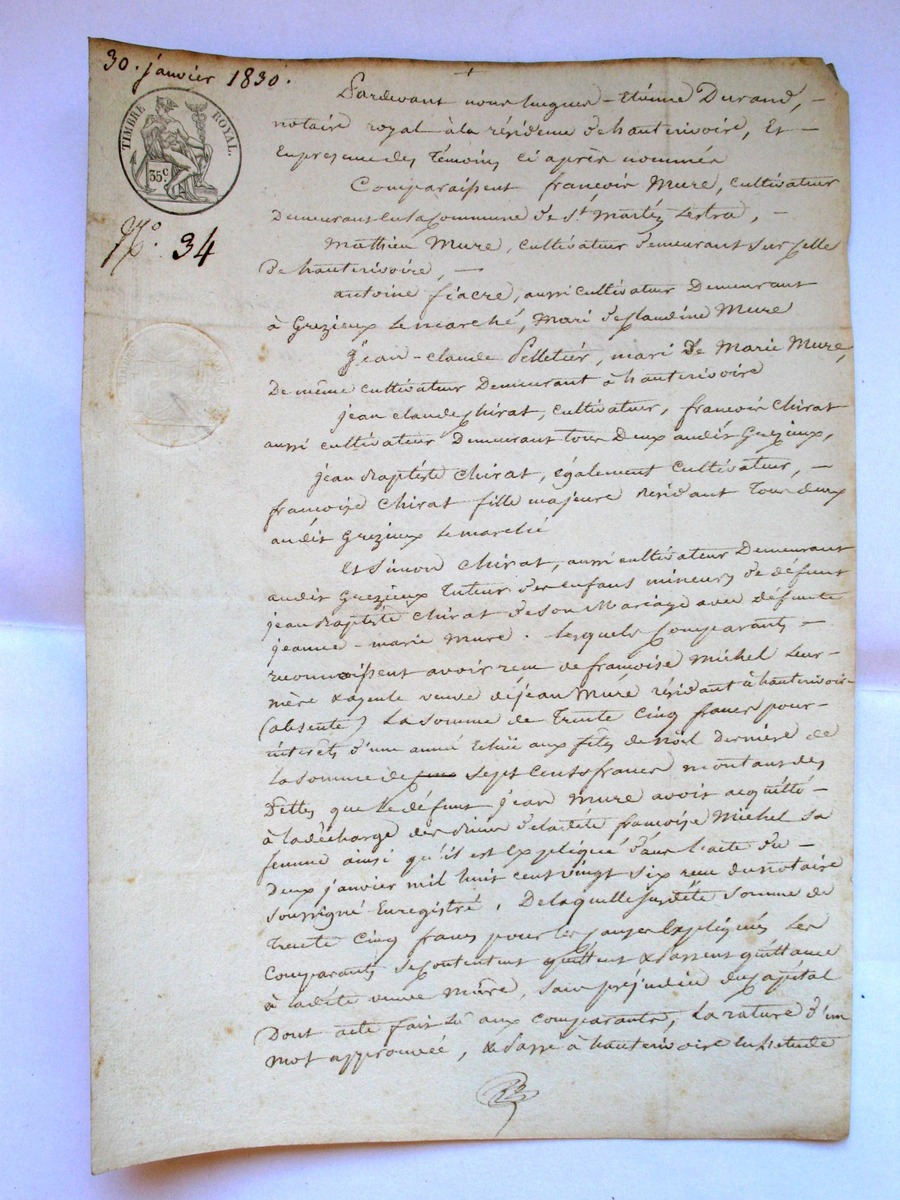 30. janvier 1830.
TIMBRE ROYAL.
35 c.
N.° 34
Pardevant nous hugues-Etienne Durand, -
notaire royal à la résidence de hauterivoire, Et -
En presence des témoins ci après nommés
Comparaissent françois Mure, cultivateur
Demeurant en la Commune de St. Martin Lestra, -
Mathieu Mure, cultivateur demeurant sur celle
De hauterivoire, -
antoine fiacre, aussi cultivateur Demeurant
à Grezieux Le marché, Mari de Claudine Mure
Jean-claude Pelletier, mari de Marie Mure,
De même cultivateur Demeurant à hauterivoire
jean claude Chirat, cultivateur, françois Chirat
aussi cultivateur Demeurant tous Deux audit Grezieux,
jean Baptiste Chirat, également cultivateur, -
francoise Chirat fille majeure résidant Tous deux
audit Grezieux Le marché
Et Simon Chirat, aussi cultivateur Demeurant
audit Grezieux Tuteur des enfans mineurs de défunt
jean Baptiste Chirat de son Mariage avec défunte
jeanne-marie Mure. Lesquels Comparants -
reconnaissent avoir recu de francoise Michel Leur
mère & ayeule veuve de jean Mure résidant à hauterivoire
(absente) La Somme de Trente Cinq francs pour -
intérêts d'une année Echue aux fêtes de Noël Dernière de
La Somme de Sept Cents francs montant des
Dettes que le défunt jean Mure avoit acquitté -
à la décharge de ladite francoise Michel Sa
femme ainsi qu'il est Expliqué dans l'acte du -
Deux janvier mil huit cent vingt six recu du notaire
Soussigné Enregistré. De laquelle susdite Somme de
Trente Cinq francs pour les causes Expliquées Les
Comparants se contentent quittent & passent quittance
à ladite veuve Mure, Sans préjudice du Capital
Dont acte fait Lu aux comparants, La rature d'un
Mot approuvée, & Passé à hauterivoire En l'etude